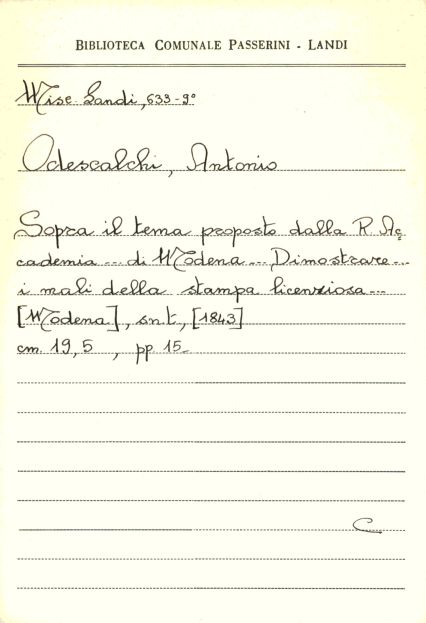 BIBLIOTECA COMUNALE PASSERINI - LANDI
Misc. Landi, 633-9°
Odescalchi, Antonio
Sopra il tema proposto dalla R. Ac
cademia ... di Modena ... Dimostrare ...
i mali della stampa licenziosa ...
[Modena], s.n.t., [1843]
cm. 19,5 , pp. 15.
C